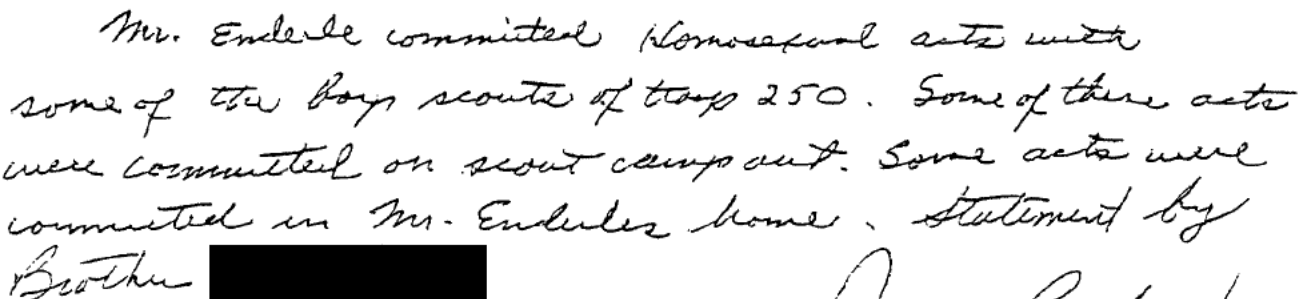 Mr. Enderle committed Homosexual acts with
some of the boys scouts of troop 250. Some of these acts
were committed on scout camp out. Some acts were
committed in Mr. Enderles home. Statement by
Brother